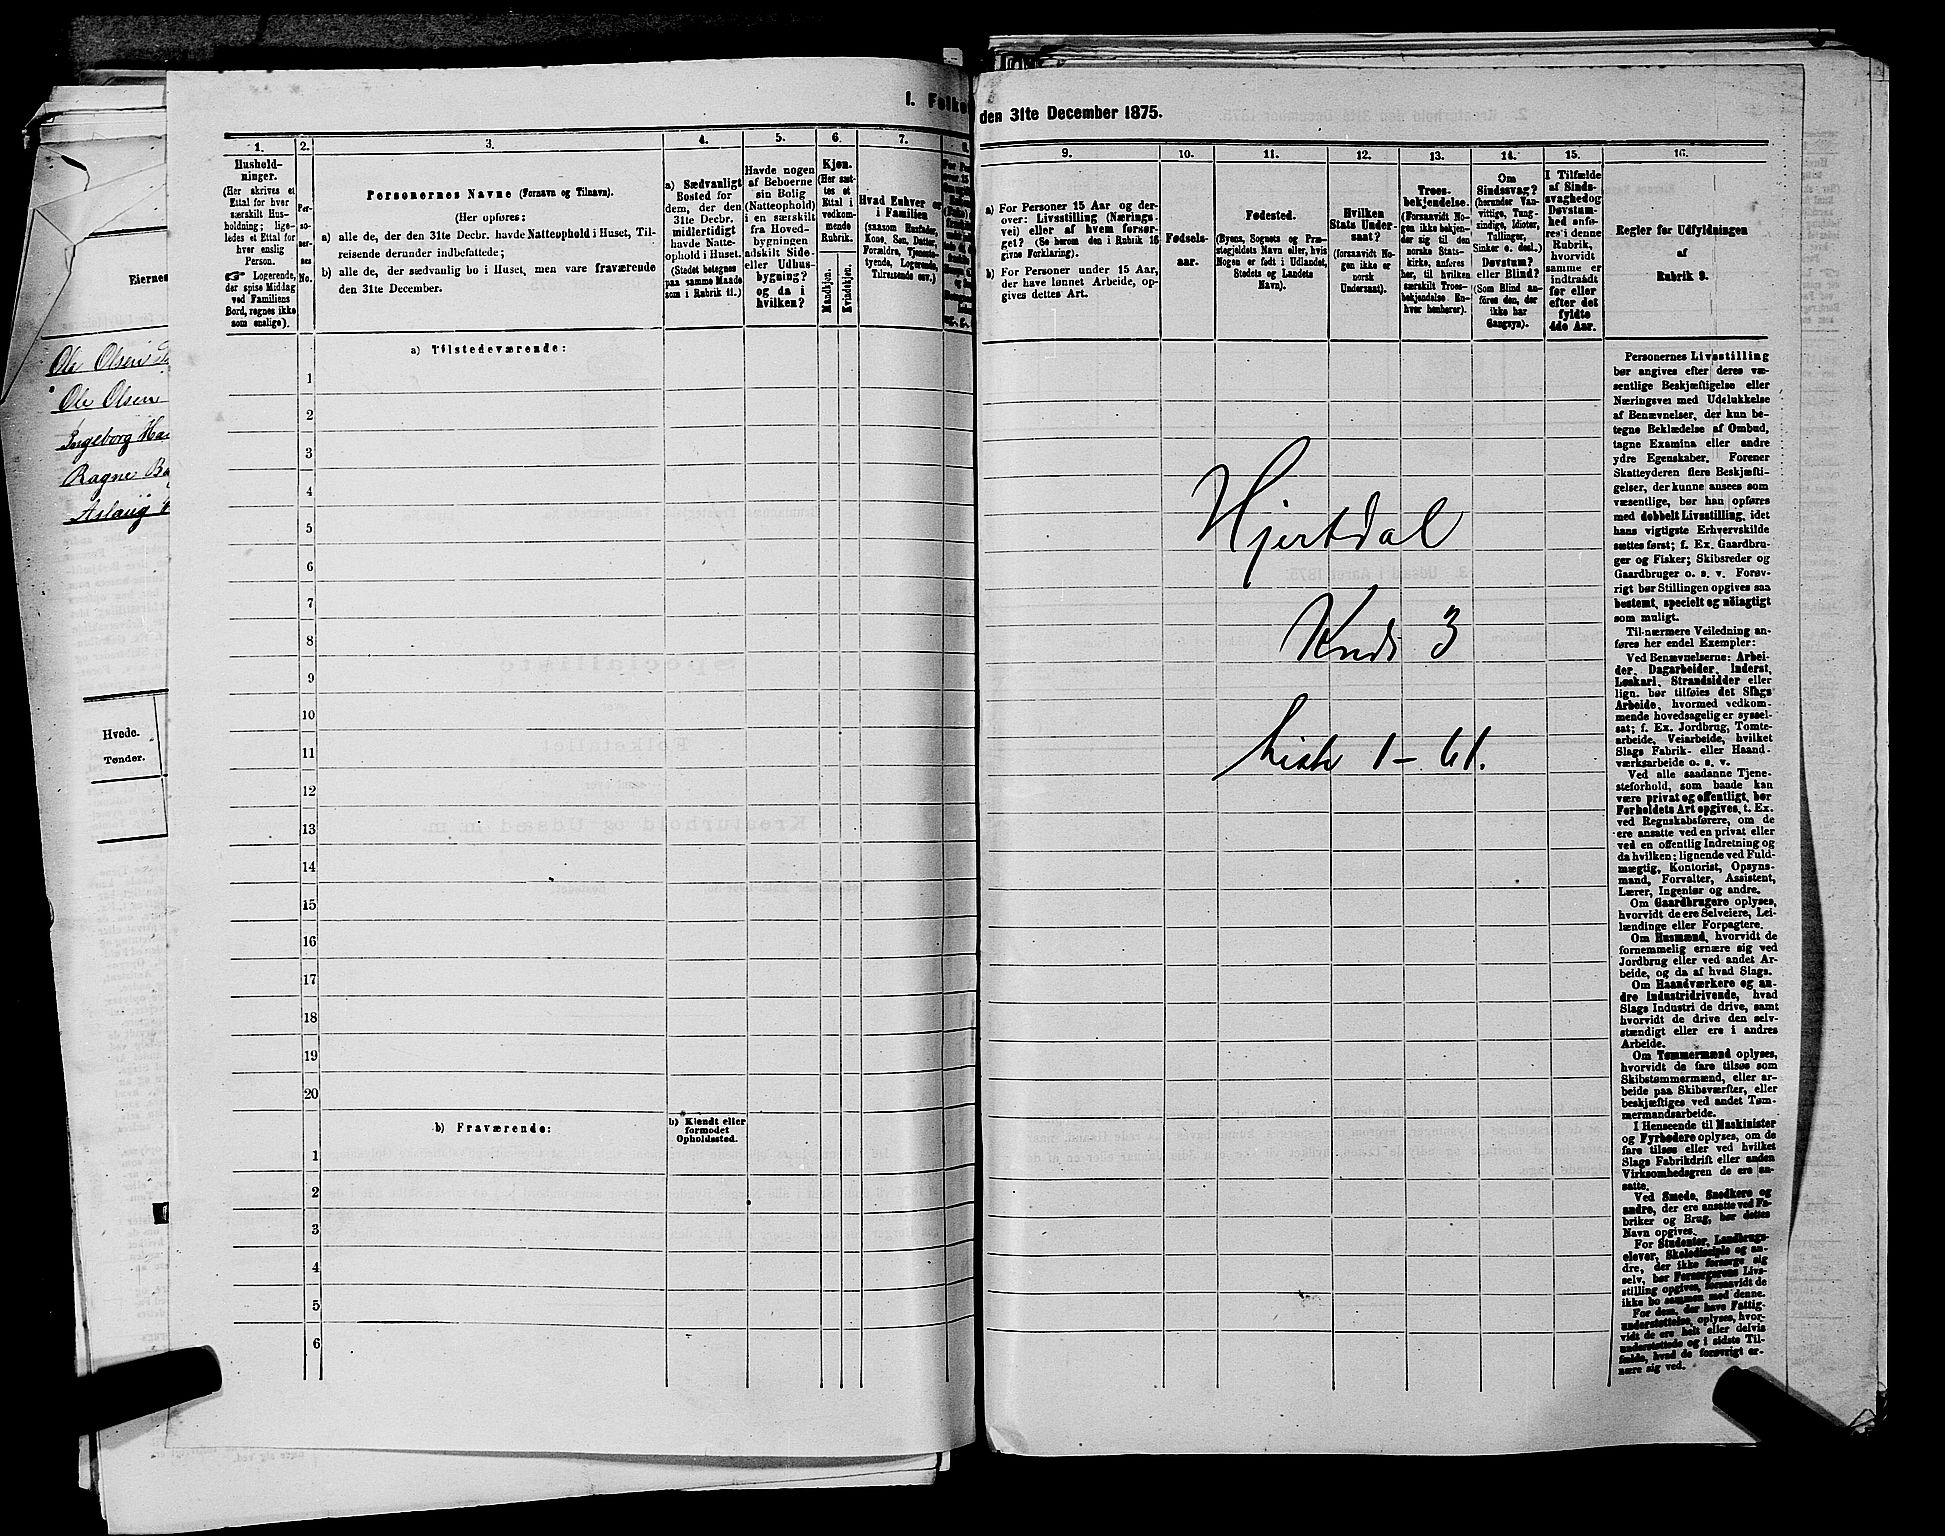 Eiernes
Ole Olsen
Ole Olsen
Ingeborg
Ragne
Aslaug
Hvede.
Tønder.
I. Folke
den 31te December 1875.
1.
Hushold-
ninger.
(Her skrives et
Ettal for hver
særskilt Hus-
holdning; lige-
ledes et Ettal for
hver enslig
Person.
☞ Logerende,
der spise Middag
ved Familiens
Bord, regnes ikke
som enslige).
2.
Per-
so-
ner-
nes
No.
3.
Personernes Navne (Fornavn og Tilnavn).
(Her opføres:
a) alle de, der den 31te Decbr. havde Natteophold i Huset, Til-
reisende derunder indbefattede;
b) alle de, der sædvanlig bo i Huset, men vare fraværende
den 31te December.
4.
a) Sædvanligt
Bosted for
dem, der den
31te Decbr.
midlertidigt
havde Natte-
ophold i Huset.
(Stedet betegnes
paa samme Maade
som i Rubrik 11.)
5.
Havde nogen
af Beboerne
sin Bolig
(Natteophold)
i en særskilt
fra Hoved-
bygningen
adskilt Side-
eller Udhus-
bygning?
og da i
hvilken?
6.
Kjøn.
(Her sæt-
tes et
Ettal i
vedkom-
mende
Rubrik.
Mandkjøn.
Kvindekjøn.
7.
Hvad Enhver er
i Familien
(saasom Husfader,
Kone, Søn, Datter,
Forældre, Tjeneste-
tyende, Logerende,
Tilreisende osv.)
8.
9.
a) For Personer 15 Aar og der-
over: Livsstilling (Nærings-
vei) eller af hvem forsør-
get? (Se herom den i Rubrik 16
givne Forklaring).
b) For Personer under 15 Aar,
der have lønnet Arbeide, op-
gives dettes Art.
10.
Fødsels-
aar.
11.
Fødested.
(Byens, Sognets og Præ-
stegjeldets Navn eller, hvis
Nogen er født i Udlandet,
Stedets og Landets
Navn).
12.
Hvilken
Stats Under-
saat?
(forsaavidt No-
gen ikke er
norsk
Undersaat).
13.
Troes-
bekjendelse.
(Forsaavidt No-
gen ikke bekjen-
der sig til den
norske Stats-
kirke, anføres
her, til hvilken
særskilt Troes-
bekjendelse En-
hver henhører).
14.
Om
Sindssvag?
(herunder Van-
vittige, Tung-
sindige, Idioter,
Tullinger,
Sinker o. desl.)
Døvstum?
eller Blind?
(Som Blind an-
føres den, der
ikke har
Gangsyn).
15.
I Tilfælde
af Sinds-
svaghed og
Døvstum-
hed anfø-
res i denne
Rubrik,
hvorvidt
samme er
indtraadt
før eller
efter det
fyldte
4de Aar.
16.
Regler for Udfyldningen
af
Rubrik 9.
a) Tilstedeværende:
1
2
3
4
5
6
7
8
9
10
11
12
13
14
15
16
17
18
19
20
b) Fraværende:
b) Kjendt eller
formodet
Opholdssted.
1
2
3
4
5
6
Hjertdal
Knds 3
Liste 1 - 61.
Personernes Livsstilling
bør angives efter deres væ-
sentlige Beskjæftigelse eller
Næringsvei med Udelukkelse
af Benævnelser, der kun be-
tegne Beklædelse af Ombud,
tagne Examina eller andre
ydre Egenskaber. Forener
Skatteyderen flere Beskjæfti-
gelser, der kunne ansees som
væsentlige, bør han opføres
med dobbelt Livsstilling, idet
hans vigtigste Erhvervskilde
sættes først; f. Ex. Gaardbru-
ger og Fisker; Skibsreder og
Gaardbruger o. s. v. Forøv-
rigt bør Stillingen opgives saa
bestemt, specielt og nøiagtigt
som muligt.
Til nærmere Veiledning an-
føres her endel Exempler:
Ved Benævnelserne: Arbei-
der, Dagarbeider, Inderst,
Løskarl, Strandsidder eller
lign. bør tilføies det Slags
Arbeide, hvormed vedkom-
mende hovedsagelig er syssel-
sat; f. Ex. Jordbrug, Tomte-
arbeide, Veiarbeide, hvilket
Slags Fabrik- eller Haand-
værksarbeide o. s. v.
Ved alle saadanne Tjene-
steforhold, som baade kan
være privat og offentligt, bør
Forholdets Art opgives, t. Ex.
ved Regnskabsførere, om de
ere ansatte ved en privat eller
ved en offentlig Indretning og
da hvilken; lignende ved Fuld-
mægtig, Kontorist, Opsyns-
mand, Forvalter, Assistent,
Lærer, Ingeniør og andre.
Om Gaardbrugere oplyses,
hvorvidt de ere Selveiere, Lei-
lændinge eller Forpagtere.
Om Husmænd, hvorvidt de
fornemmelig ernære sig ved
Jordbrug eller ved andet Ar-
beide, og da af hvad Slags.
Om Haandværkere og an-
dre Industridrivende, hvad
Slags Industri de drive, samt
hvorvidt de drive den selv-
stændigt eller ere i andres
Arbeide.
Om Tømmermænd oplyses,
hvorvidt de fare tilsøs som
Skibstømmermænd, eller ar-
beide paa Skibsværfter, eller
beskjæftiges ved andet Tøm-
mermandsarbeide.
I Henseende til Maskinister
og Fyrbødere oplyses, om de
fare tilsøs eller ved hvilket
Slags Fabrikdrift eller anden
Virksomhedsgren de ere an-
satte.
Ved Smede, Snedkere og
andre, der ere ansatte ved Fa-
briker og Brug, bør dettes
Navn opgives.
For Studenter, Landbrugs-
elever, Skoledisciple og an-
dre, der ikke forsørge sig
selv, bør Forsørgerens Livs-
stilling opgives, forsaavidt de
ikke bo sammen med denne.
For dem, der have Fattig-
understøttelse, oplyses, hvor-
vidt de ere helt eller delvis
understøttede og i sidste Til-
fælde, hvad de forøvrigt er-
nære sig ved.